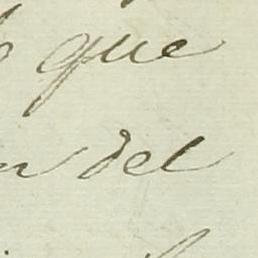 que
del